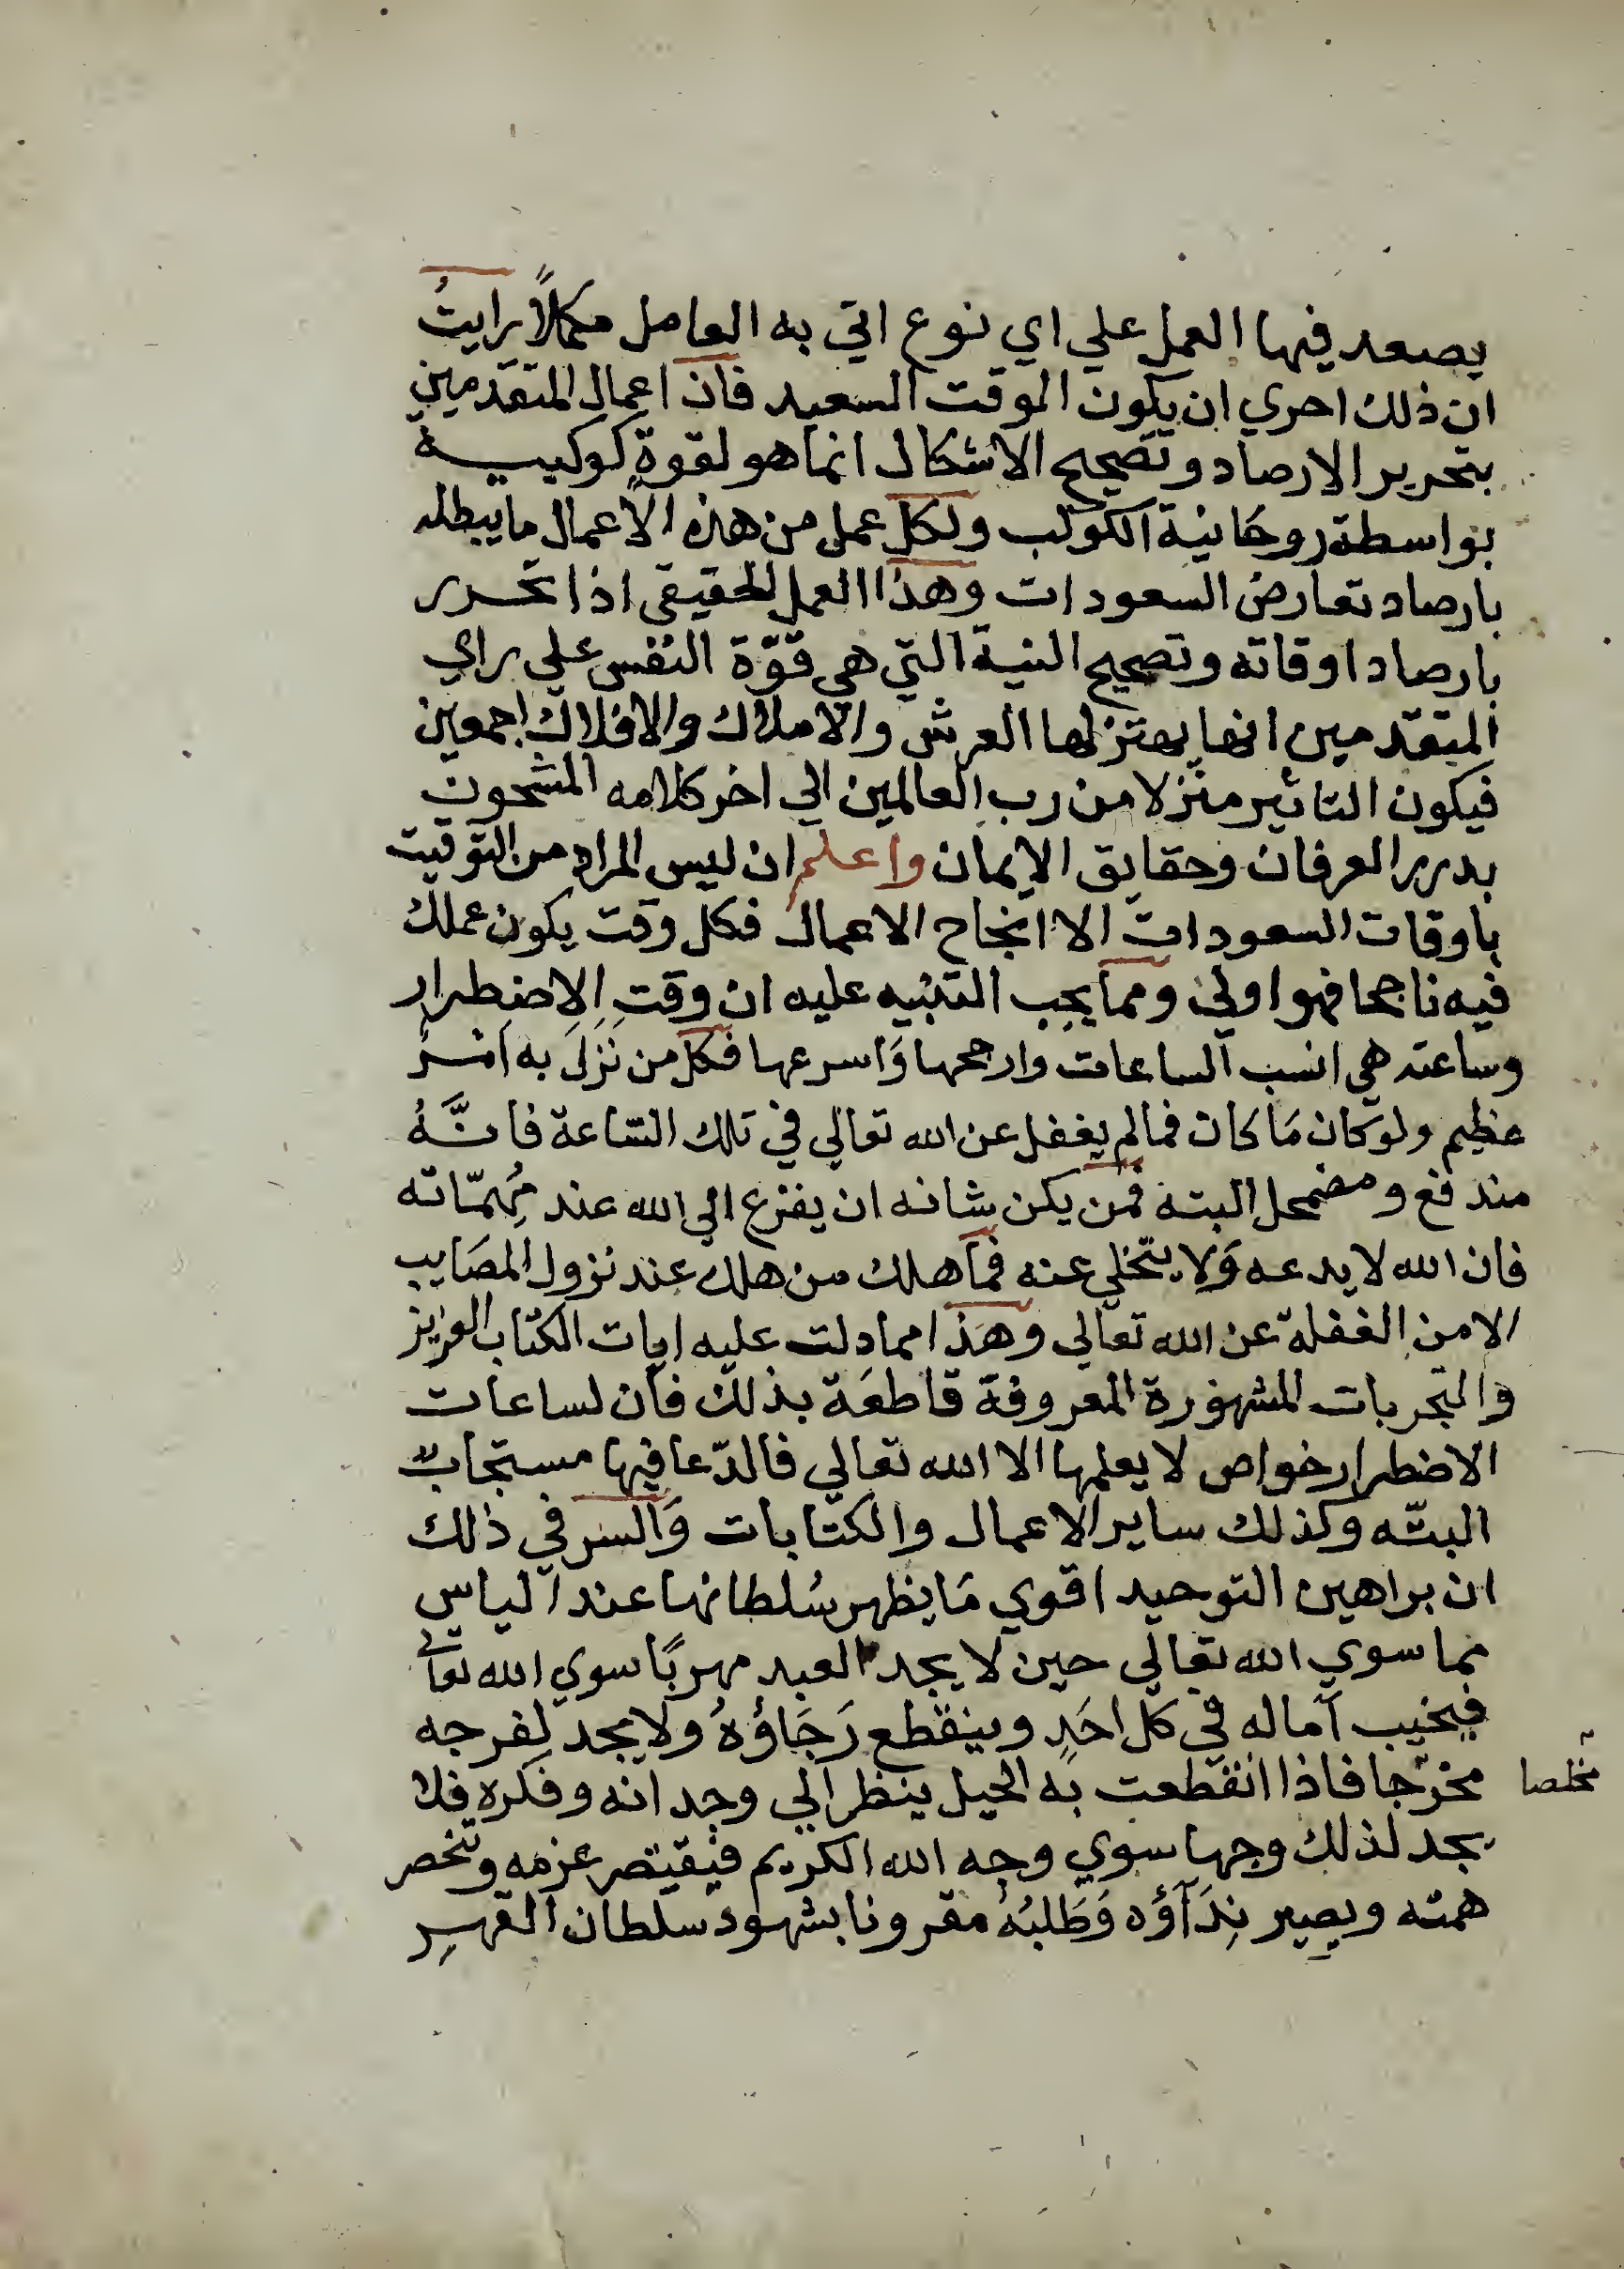 يصعد فيها العمل علي اي نوع اتي به العامل مكملاً رايتُ
ان ذلك احري ان يكون الموقت السعيد فان اعمال المتقدمين
بتحرير الارصاد وتصحيح الاشكال انما هو لقوة كوكبيـــة
بواسطة روحانية الكوكب ولكل عمل من هذه الاعمال ما يبطله
بارصاد تعارض السعودات وهذا العمل الحقيقي اذا تحرر
بارصاد اوقاته وتصحيح النية التي هي قوّة النفس علي راي
المتقدمين انها يهتز لها العرش والاملاك والافلاك اجمعين
فيكون التاثير منزلا من رب العالمين الي اخر كلامه المشحون
بدرر العرفان وحقايق الايمان واعلم ان ليس المراد من التوقيت
باوقات السعودات الا انجاح الاعمال فكل وقت يكون عملك
فيه ناجحا فهو اولي ومما يجب التنبيه عليه ان وقتِ الاِضطرار
وساعته هي انسب الساعات وارجحها وَاسرعها فكل من نَزَلَ به اَمـرٌ
عظيم ولو كان مَا كان فما لم يغفل عن الله تعالي في تلك السّاعة فانَّـهُ
مندفع ومضمحل البتة فمن يكن شانه ان يفزع الي الله عند مُهِمّاته
فان الله لا يدعه وَلا يتخلي عنه فما هلك من هلك عند نزول المصَايب
الا من الغفلة عن الله تعالي وهَذا مما دلت عليه ايات الكتاب العزيز
والتجربات المشهورة المعروفة قاطعَة بذلك فان لساعات
الاضطرار خواص لا يعلمها الا الله تعالي فالدّعا فيها مستجابٌ
البتّه وكذلك ساير الاعمال والكتابات وَالسر في ذلك
ان براهين التوحيد اقوي مَا يظهر سُلطانها عند الياس
مما سوي الله تعالي حين لا يجد العبد مهربًا سوي الله تعالي
فيخيب آماله في كل احَدٍ وينقطع رَجَاؤُهُ ولا يجد لِفرجه
مخرَجا فاذا انقطعت به الحيل ينظر الي وجدانه وفكره فلا
مخلصا
يجد لذلك وجها سوي وجه الله الكريم فيقتصر عزمه وتخصر
همته ويصير نِدَآؤه وَطَلبُهُ مقرونا بشهود سلطان القهـرِ